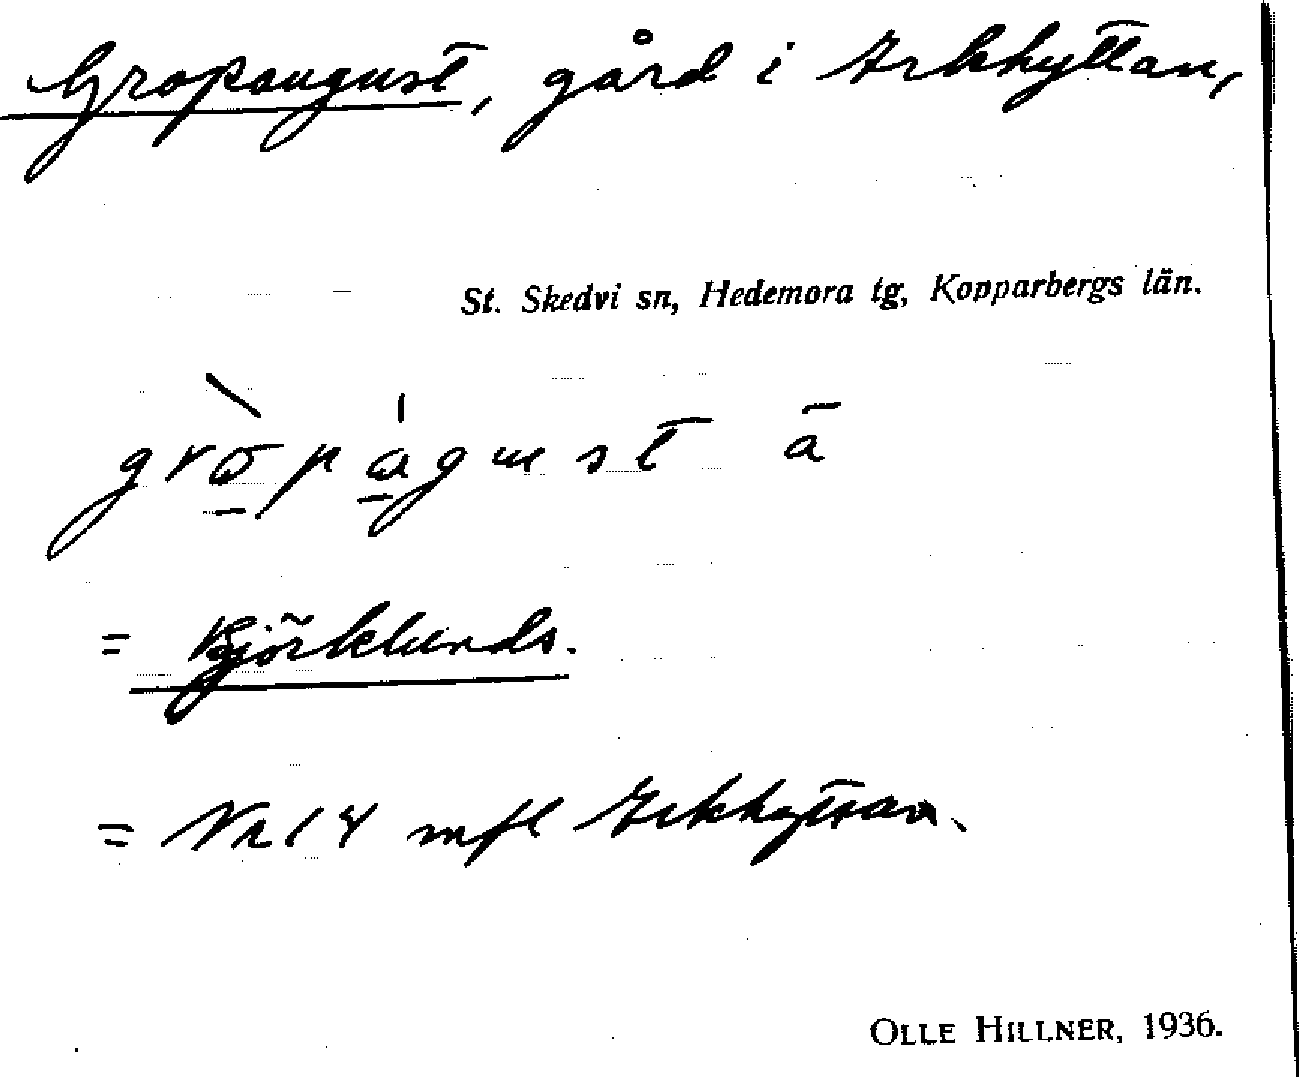 Gropaugust, gård i Arkhyttan,
St. Skedvi sn, Hedemora tg, Kopparbergs län.
= Björklunds.
= Nr 18 mfl Arkhyttan.
OLLE HILLNER, 1936.